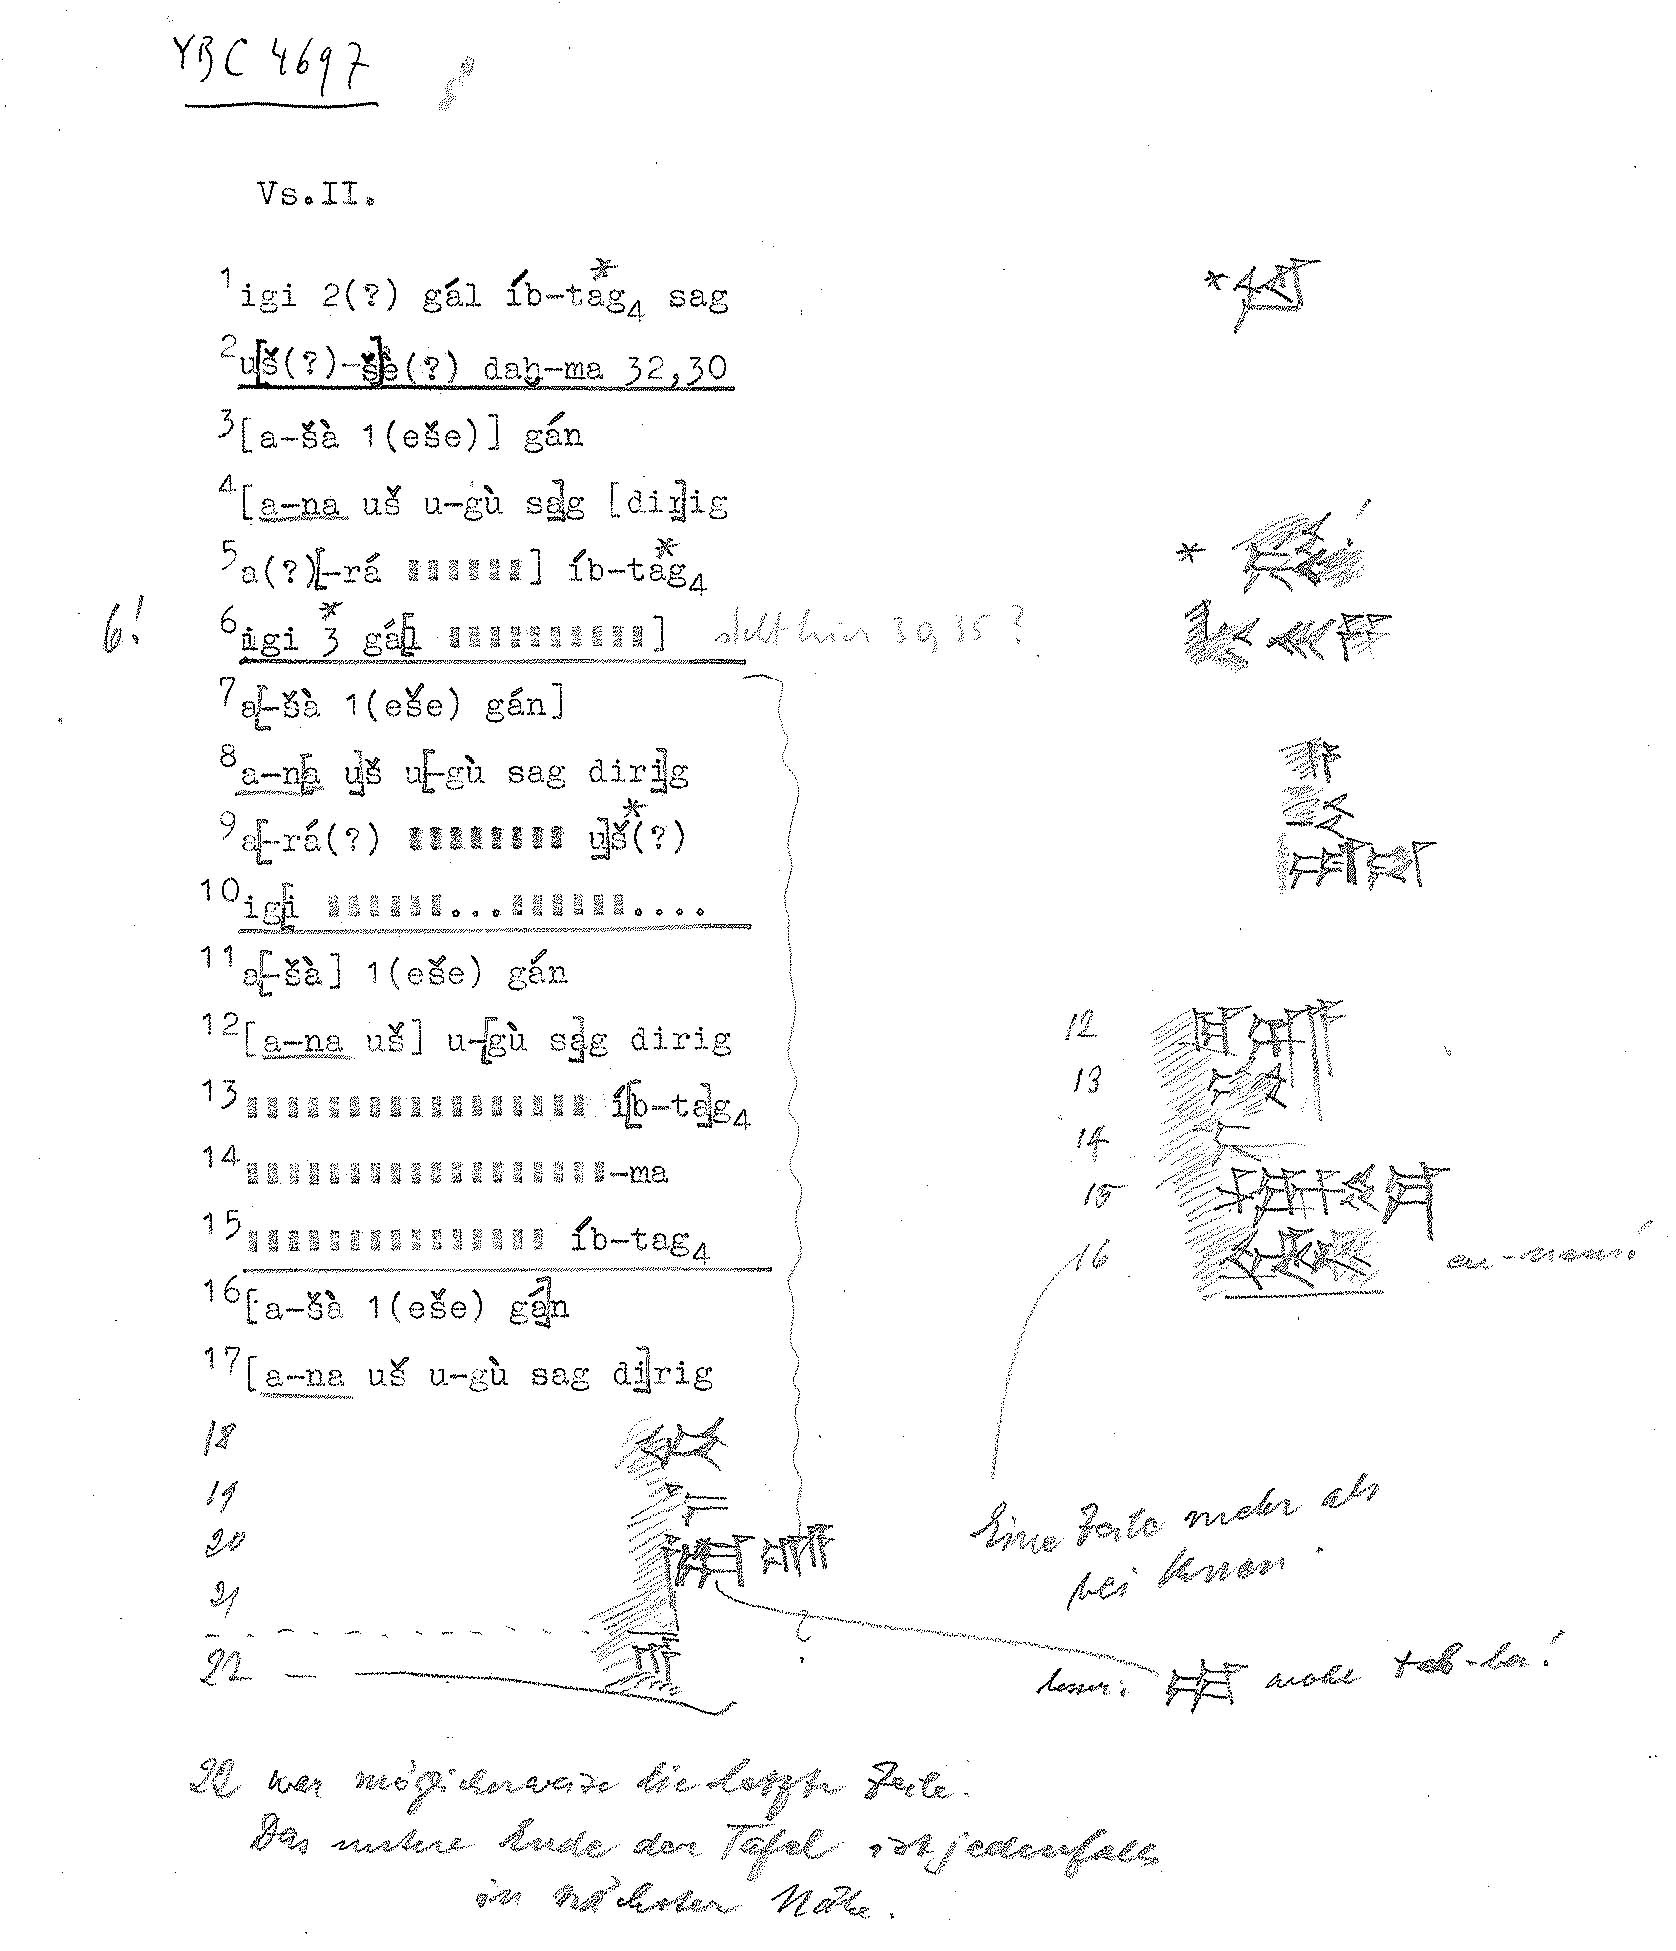 YBC 4697
Vs.II.
1 igi 2(?) gál íb-tag₄* sag
2 u[š(?)-š]è(?) daḫ-ma 32,30
3 [a-šà 1(eše)] gán
4 [a-na uš u-gù sa]g [dir]ig
5 a(?)[-rá ......] íb-tag₄* *
6! 6 igi 3* gá[l ..........] steht hier 30, 35?
7 a[-šà 1(eše) gán]
8 a-n[a u]š u[-gù sag diri]g
9 a[-rá(?) ........ u]š*(?)
10 ig[i ......................
11 a[-šà] 1(eše) gán
12 [a-na uš] u-[gù sa]g dirig 12
13 ................. í[b-ta]g₄ 13
14 ..................-ma 14
15 ............... íb-tag₄ 15
16 [a-šà 1(eše) gá]n 16
17 [a-na uš u-gù sag di]rig
18
19
20
21
22
Eine Zeile mehr als
bei Ihnen.
besser: wohl tab-ba!
22 war möglicherweise die letzte Zeile.
Das untere Ende der Tafel ist jedenfalls
in nächster Nähe.